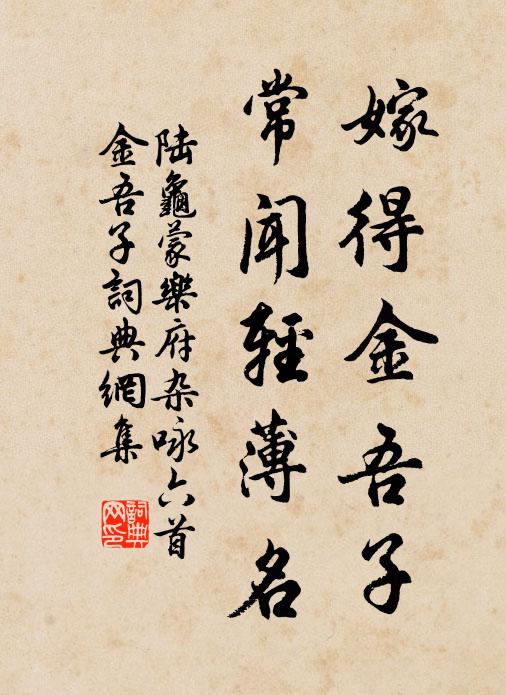 嫁得金吾子
常聞輕薄名
陸龜蒙樂府杂咏六首
金吾子詞典網集
詞典网印